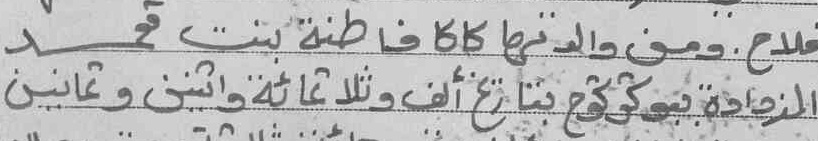 فلاح. ومن والدتها كاكا فاطنة بنت محمد
المزدادة ببوكركوح بتاريخ ألف وثلاثمائة واثنين وثمانين